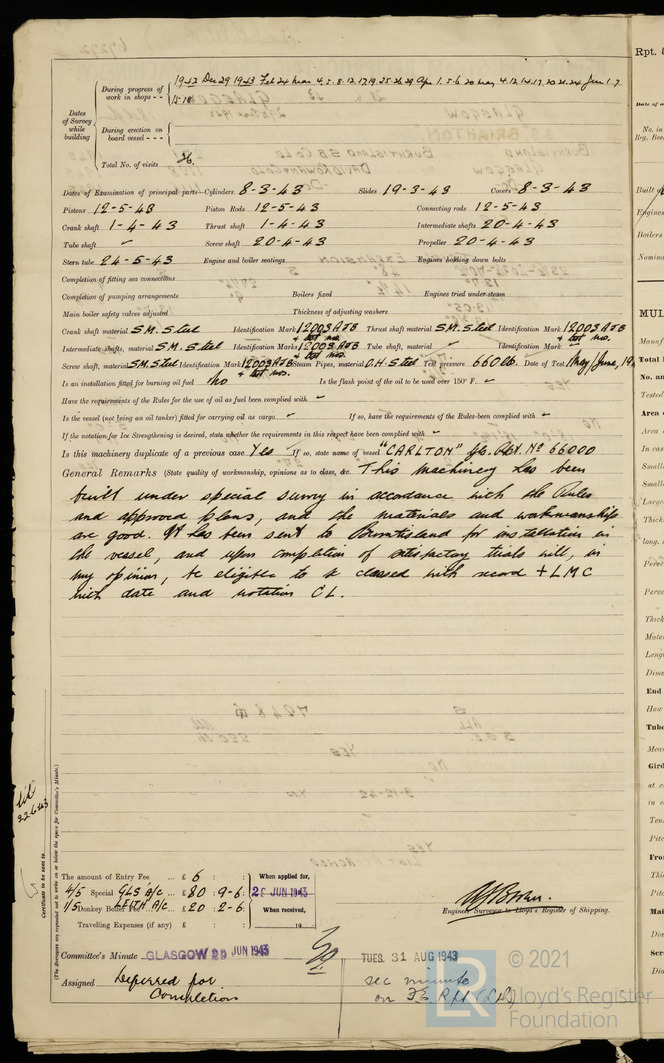 1942 Dec 29 1943 Feb 24 Mar 4. 5. 8. 12. 17. 19. 25. 26. 29 Apr 1. 5. 6. 20 May 4. 12. 14. 17. 20. 21. 24 Jun 1. 7
During progress of work in shops - -
Dates of Survey while building
During erection on board vessel - - -
Total No. of visits 26.
Dates of Examination of principal parts—Cylinders 8-3-43 Slides 19-3-43 Covers 8-3-43
Pistons 12-5-43 Piston Rods 12-5-43 Connecting rods 12-5-43
Crank shaft 1-4-43 Thrust shaft 1-4-43 Intermediate shafts 20-4-43
Tube shaft ✓ Screw shaft 20-4-43 Propeller 20-4-43
Stern tube 24-5-43 Engine and boiler seatings Engines holding down bolts
Completion of fitting sea connections
Completion of pumping arrangements Boilers fixed Engines tried under steam
Main boiler safety valves adjusted Thickness of adjusting washers
Crank shaft material S.M. Steel Identification Mark 12003 AJB & test no. Thrust shaft material S.M. Steel Identification Mark 12003 AJB & test no.
Intermediate shafts, material S.M. Steel Identification Marks 12003 AJB & test nos. Tube shaft, material ✓ Identification Mark ✓
Screw shaft, material S.M. Steel Identification Mark 12003 AJB & test nos. Steam Pipes, material O.H. Steel Test pressure 660 lb. Date of Test May/June, 19
Is an installation fitted for burning oil fuel No Is the flash point of the oil to be used over 150° F. ✓
Have the requirements of the Rules for the use of oil as fuel been complied with ✓
Is the vessel (not being an oil tanker) fitted for carrying oil as cargo ✓ If so, have the requirements of the Rules been complied with ✓
If the notation for Ice Strengthening is desired, state whether the requirements in this respect have been complied with ✓
Is this machinery duplicate of a previous case Yes If so, state name of vessel "CARLTON" Gls. Rpt. No 66000
General Remarks (State quality of workmanship, opinions as to class, &c. This machinery has been
built under special survey in accordance with the Rules
and approved plans, and the materials and workmanship
are good. It has been sent to Burntisland for installation in
the vessel, and upon completion of satisfactory trials will, in
my opinion, be eligible to be classed with record + LMC
with date and notation CL.
22.6.43
Certificate to be sent to
(The Surveyors are requested not to write on or below the space for Committee's Minute.)
The amount of Entry Fee ... £ 6 : : When applied for,
4/5 Special GLS A/C ... £ 80 : 9 - 6 : JUN 1943
1/5 Donkey Boiler Fee LEITH A/C £ 20 : 2 - 6 : When received,
Travelling Expenses (if any) £ : : 19
Engineer Surveyor to Lloyd's Register of Shipping.
Committee's Minute GLASGOW JUN 1943
TUES. 31 AUG 1943
Assigned Deferred for
Completion
see minute
on F.E. Rpt
LR
© 2021
Lloyd's Register
Foundation
Rpt. 5
Date of
No. in
Reg. Book
Built
Engines
Boilers
Nomin
MUL
Manuf
Total
No. an
Tested
Area
Area
In case
Smalle
Smalle
Large
Thick
long.
Perce
Perce
Thick
Mate
Leng
Dime
End
How
Tube
Mea
Gird
at c
in c
Ten
Pite
Fron
Thic
Pitc
Mai
Dia
Scre
Dia